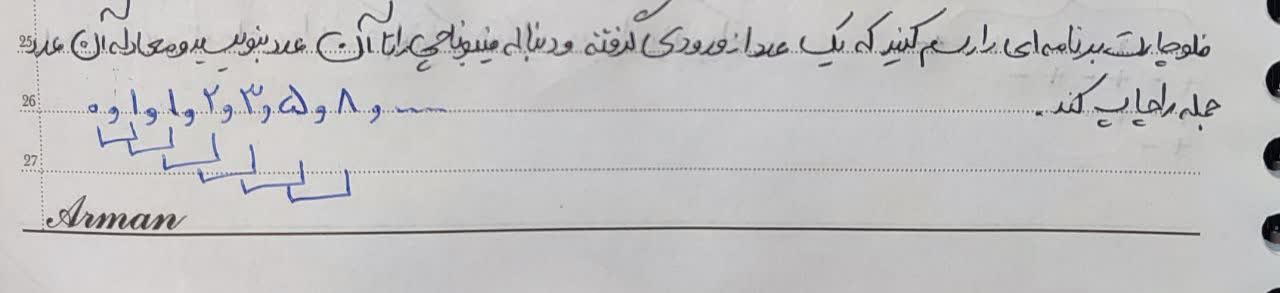 25 فلوچارت برنامه‌ای را رسم کنید که یک عدد از ورودی گرفته و دنباله فیبوناچی را تا آن عدد بنویسید و معادله آن عدد
جمله را چاپ کند.
26 ۰ و ۱ و ۱ و ۲ و ۳ و ۵ و ۸ و ....
27
Arman